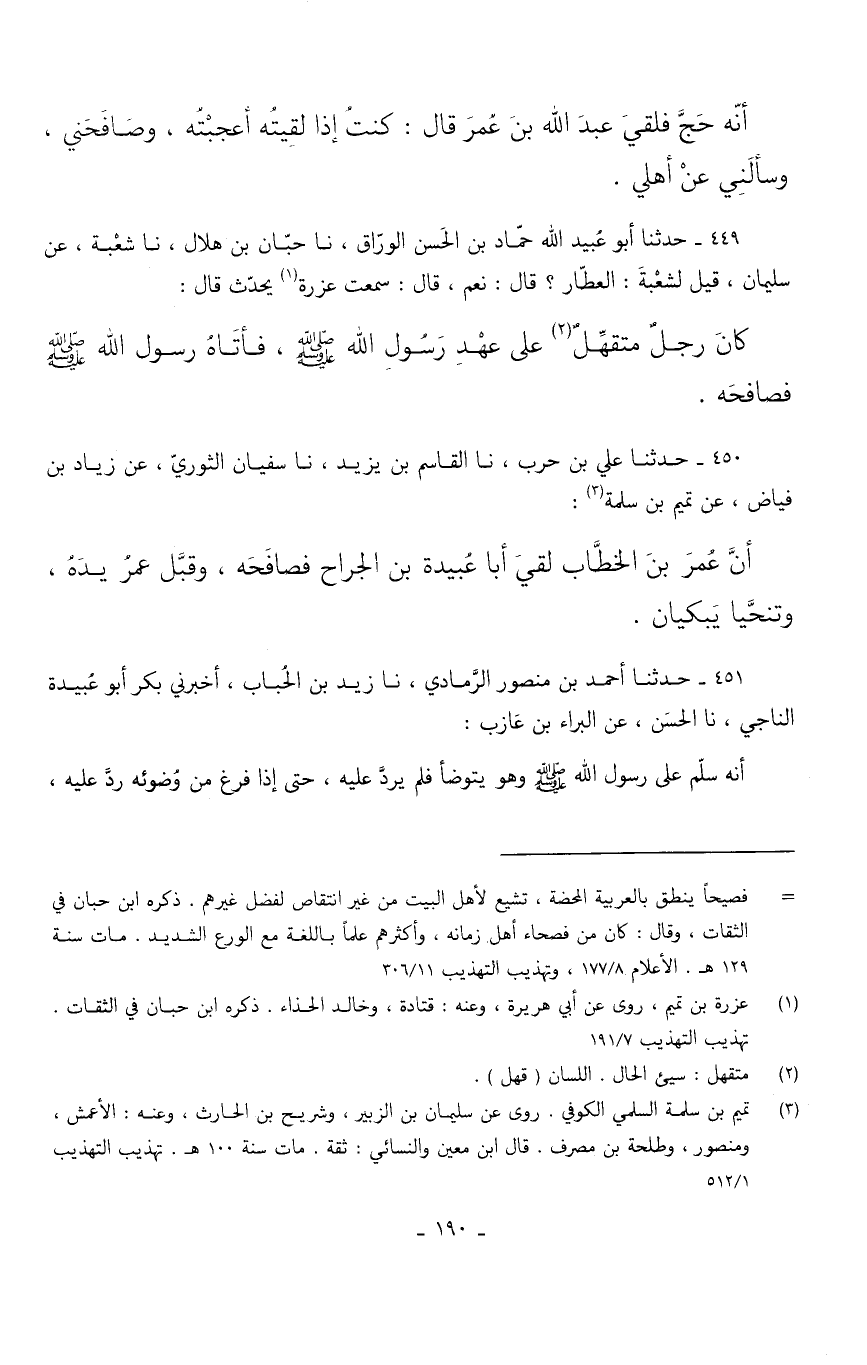 أنّه حَجَّ فلقيَ عبدَ الله بنَ عُمرَ قال : كنتُ إذا لقِيتُه أعجبْتُه ، وصَافَحَني ،
وسألَنِي عنْ أهلي .
٤٤٩ ـ حدثنا أبو عُبيد الله حمّاد بن الحَسن الورّاق ، نا حبّان بن هلال ، نا شعْبة ، عن
سليمان ، قيل لشعْبةَ : العطّار ؟ قال : نعم ، قال : سمعت عزرة(١) يحدّث قال :
كانَ رجلٌ متقهِّلٌ(٢) على عهْدِ رَسُولِ الله ﷺ ، فأتَاهُ رسول الله ﷺ
فصافحَه .
٤٥٠ ـ حدثنا علي بن حرب ، نا القاسم بن يزيد ، نا سفيان الثوريّ ، عن زياد بن
فياض ، عن تميم بن سلمة(٣) :
أنَّ عُمرَ بنَ الخطَّاب لقيَ أبا عُبيدة بن الجراح فصافَحَه ، وقبَّل عمرُ يدَهُ ،
وتنحَّيا يَبكيان .
٤٥١ ـ حدثنا أحمد بن منصور الرَّمادي ، نا زيد بن الحُباب ، أخبرني بكر أبو عُبيدة
الناجي ، نا الحسَن ، عن البراء بن عَازب :
أنه سلّم على رسول الله ﷺ وهو يتوضأ فلم يردَّ عليه ، حتى إذا فرغ من وُضوئه ردَّ عليه ،
= فصيحاً ينطق بالعربية المحضة ، تشيع لأهل البيت من غير انتقاص لفضل غيرهم . ذكره ابن حبان في
الثقات ، وقال : كان من فصحاء أهل زمانه ، وأكثرهم علماً باللغة مع الورع الشديد . مات سنة
١٢٩ هـ . الأعلام ١٧٧/٨ ، وتهذيب التهذيب ٣٠٦/١١
(١) عزرة بن تميم ، روى عن أبي هريرة ، وعنه : قتادة ، وخالد الحذاء . ذكره ابن حبان في الثقات .
تهذيب التهذيب ١٩١/٧
(٢) متقهل : سيئ الحال . اللسان ( قهل ) .
(٣) تميم بن سلمة السلمي الكوفي . روى عن سليمان بن الزبير ، وشريح بن الحارث ، وعنه : الأعمش ،
ومنصور ، وطلحة بن مصرف . قال ابن معين والنسائي : ثقة . مات سنة ١٠٠ هـ . تهذيب التهذيب
٥١٢/١
ـ ١٩٠ ـ